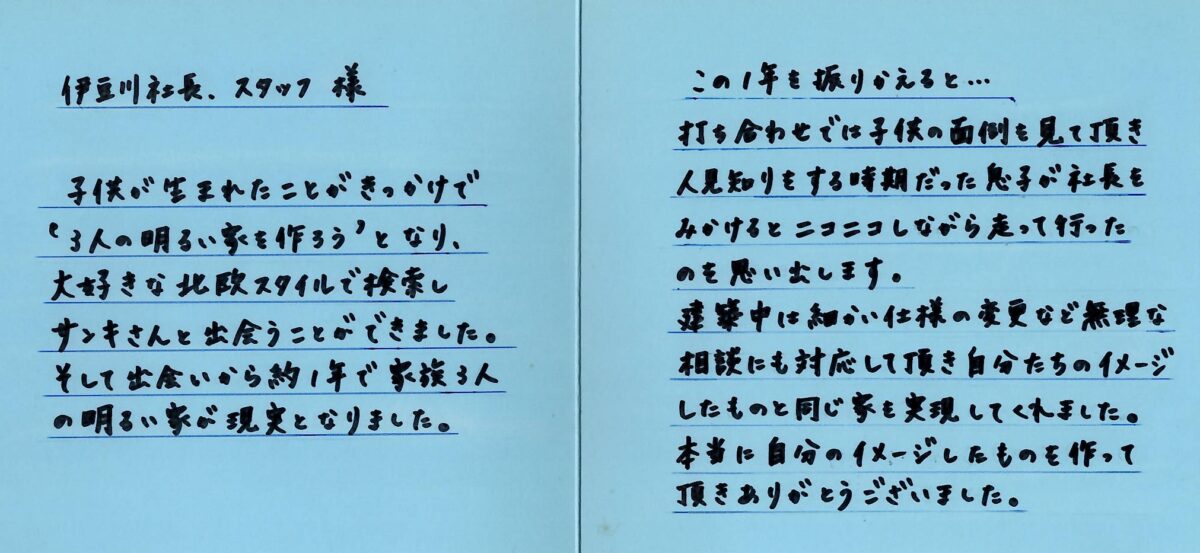 伊豆川社長、スタッフ 様
子供が生まれたことがきっかけで
“3人の明るい家を作ろう”となり、
大好きな北欧スタイルで検索し
サンキさんと出会うことができました。
そして出会いから約1年で家族3人
の明るい家が現実となりました。
この1年を振りかえると…
打ち合わせでは子供の面倒を見て頂き
人見知りをする時期だった息子が社長を
みかけるとニコニコしながら走って行った
のを思い出します。
建築中は細かい仕様の変更など無理な
相談にも対応して頂き自分たちのイメージ
したものと同じ家を実現してくれました。
本当に自分のイメージしたものを作って
頂きありがとうございました。